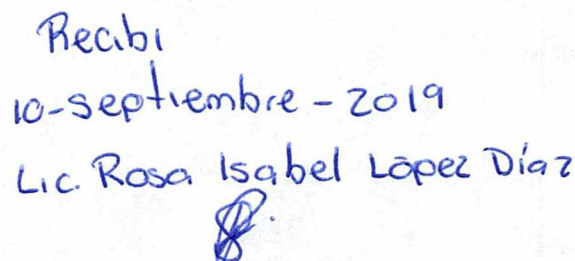 Recibi
10-septiembre-2019
Lic. Rosa Isabel López Díaz